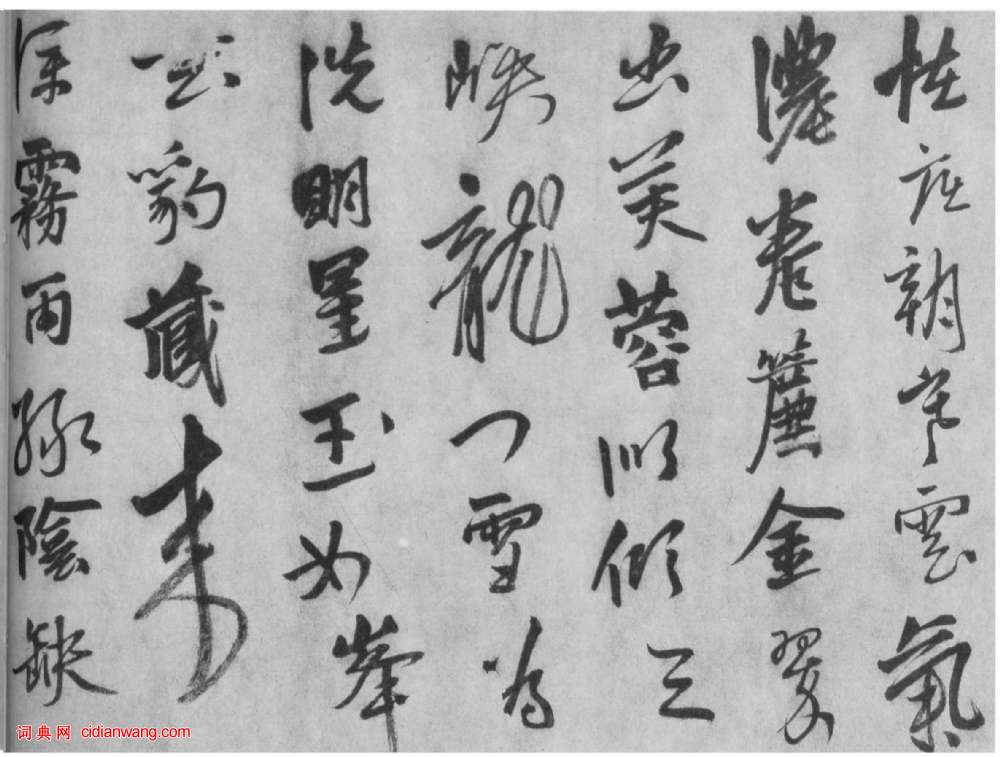 怪底朝寒雲氣
濃卷簾金翠
出芙蓉似傾三
峽龍門雪為
洗明星玉女峯
豹藏來
深霧雨綠陰缺
词典网 cidianwang.com